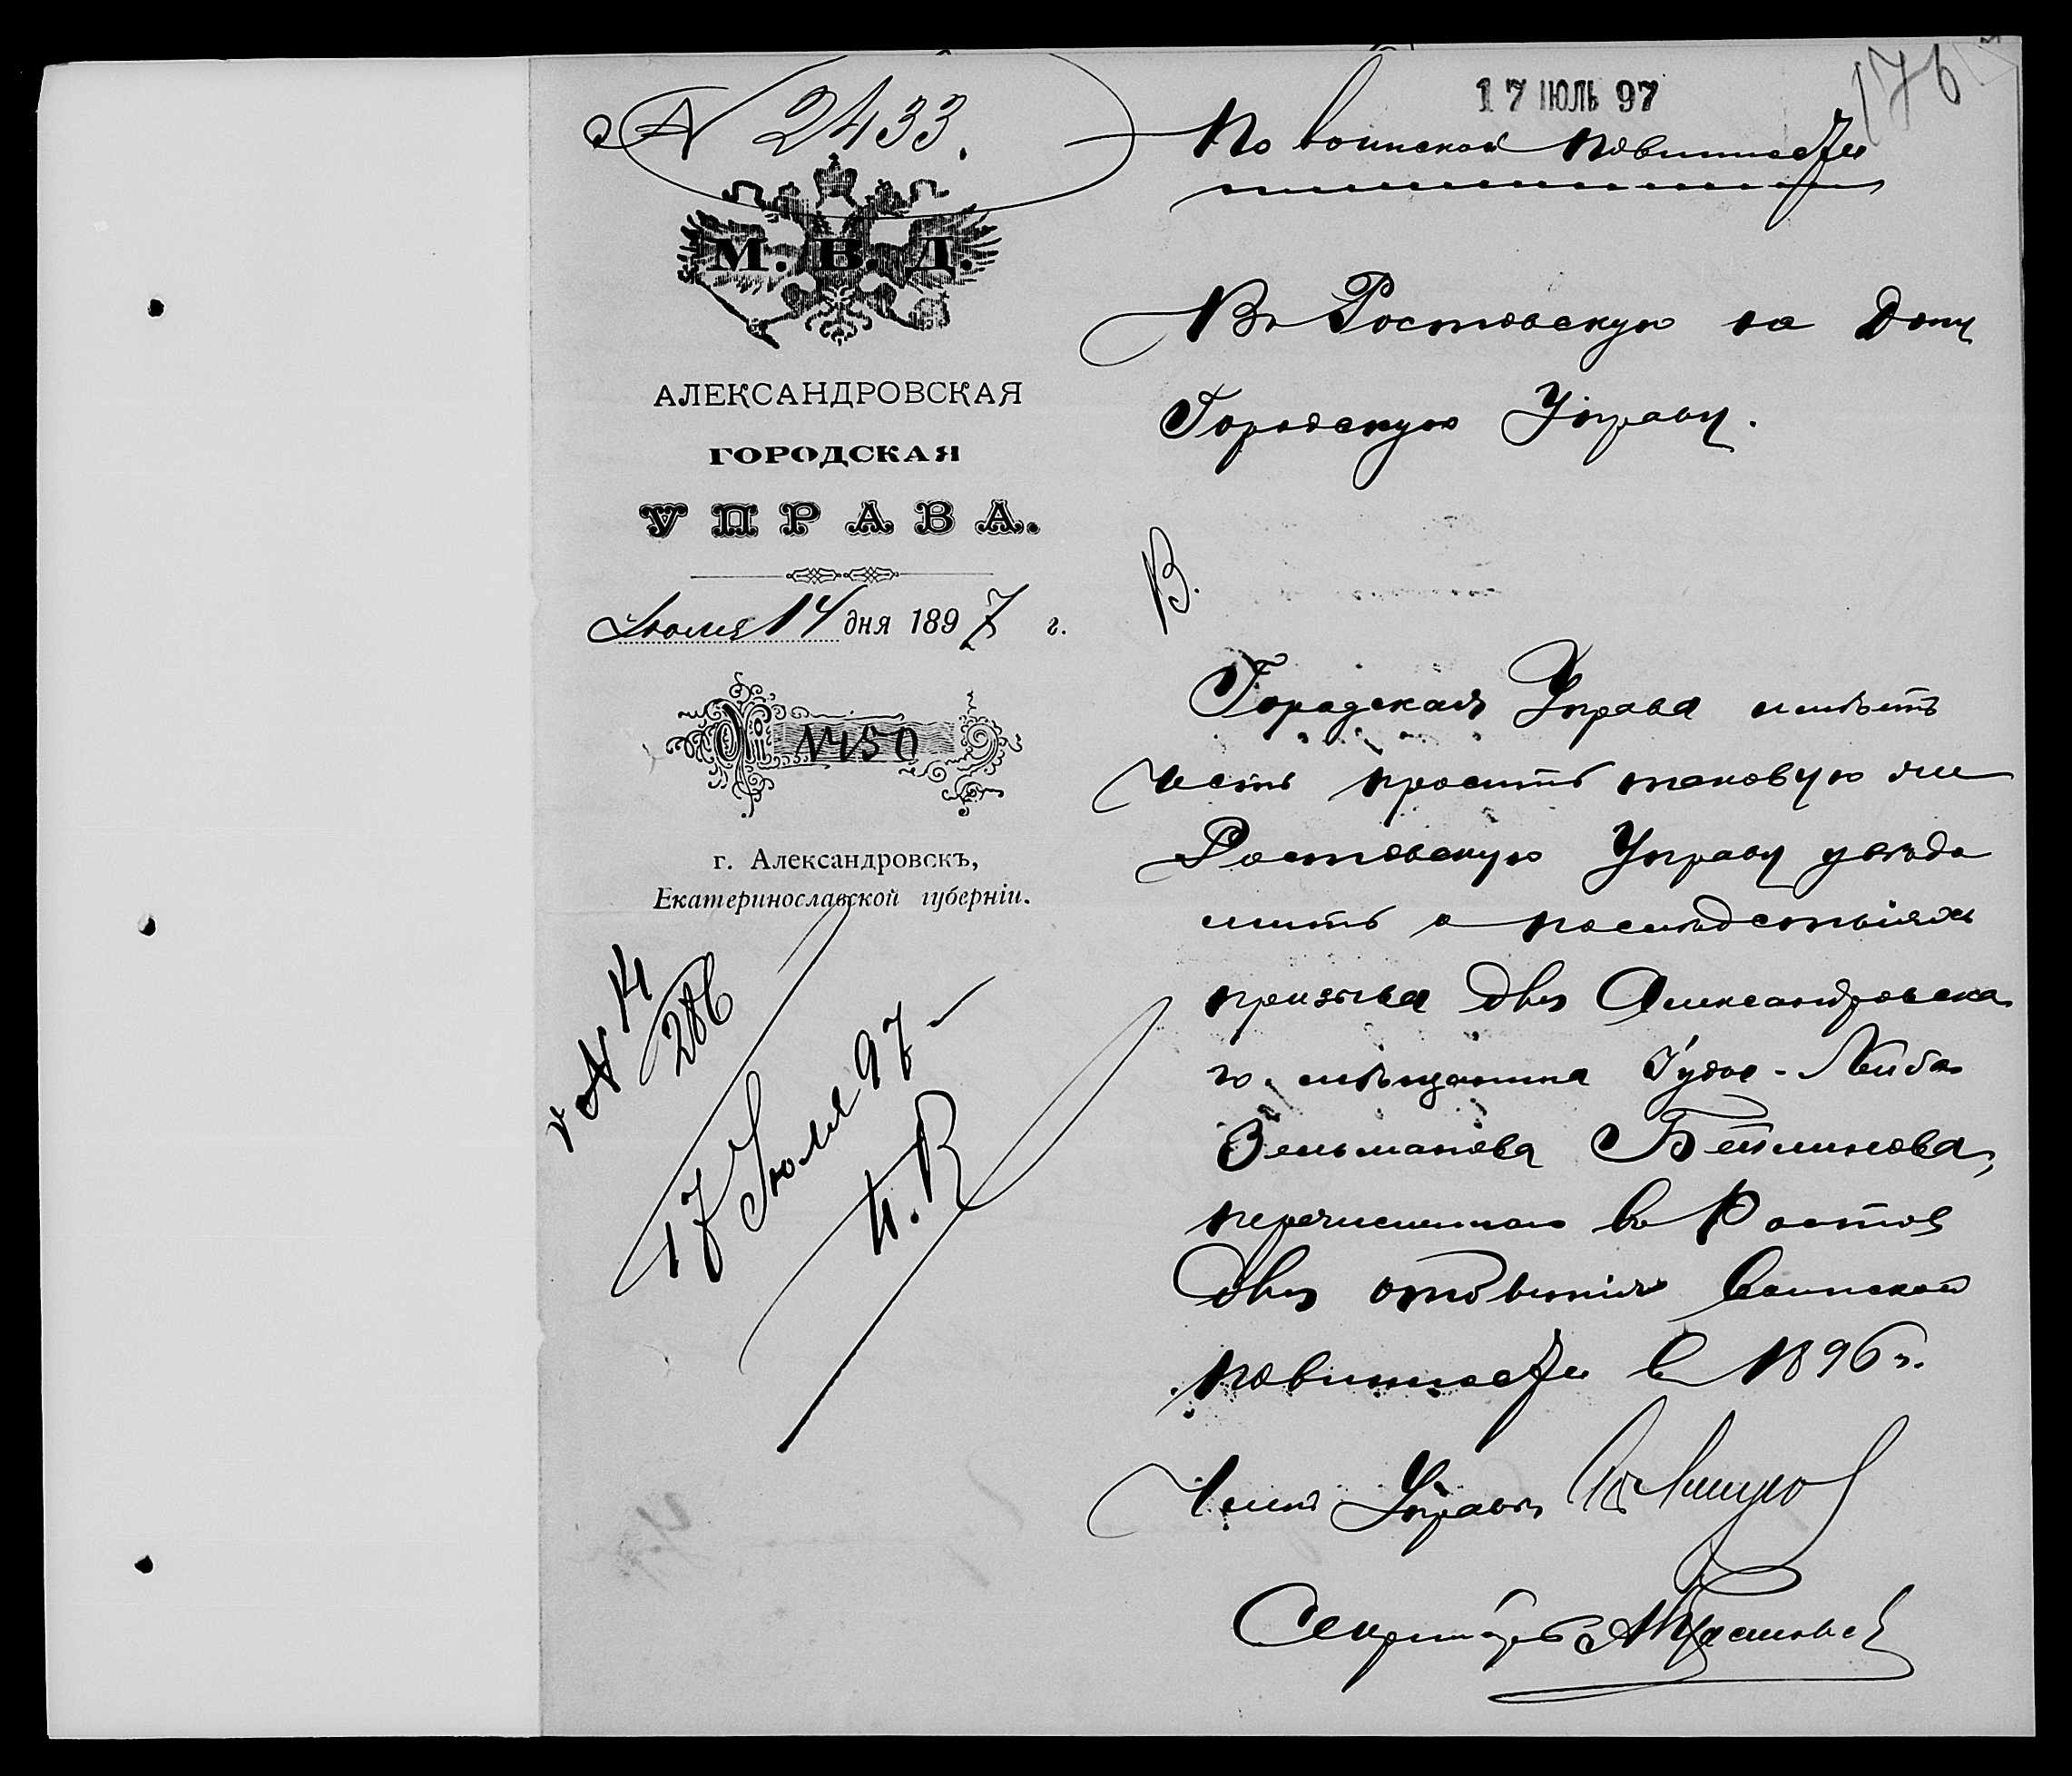 № 2433.
17 ІЮЛЬ 97
176
По воинской повинности
М. В. Д.
АЛЕКСАНДРОВСКАЯ
ГОРОДСКАЯ
УПРАВА.
Іюля 14 дня 1897 г.
№ 1450
г. Александровскъ,
Екатеринославской губерніи.
Въ Ростовскую на Дону
Городскую Управу.
В.
Городская Управа имѣетъ
честь просить таковую же
Ростовскую Управу увѣдо
мить о послѣдствіяхъ
призыва для Александровска
го мѣщанина Гудоя-Лейба
Зельманова Бейлинова,
перечисленнаго въ Ростов
для отбытія воинской
повинности въ 1896 г.
Членъ Управы
Секретарь
№ 14
286
17 Іюля 97